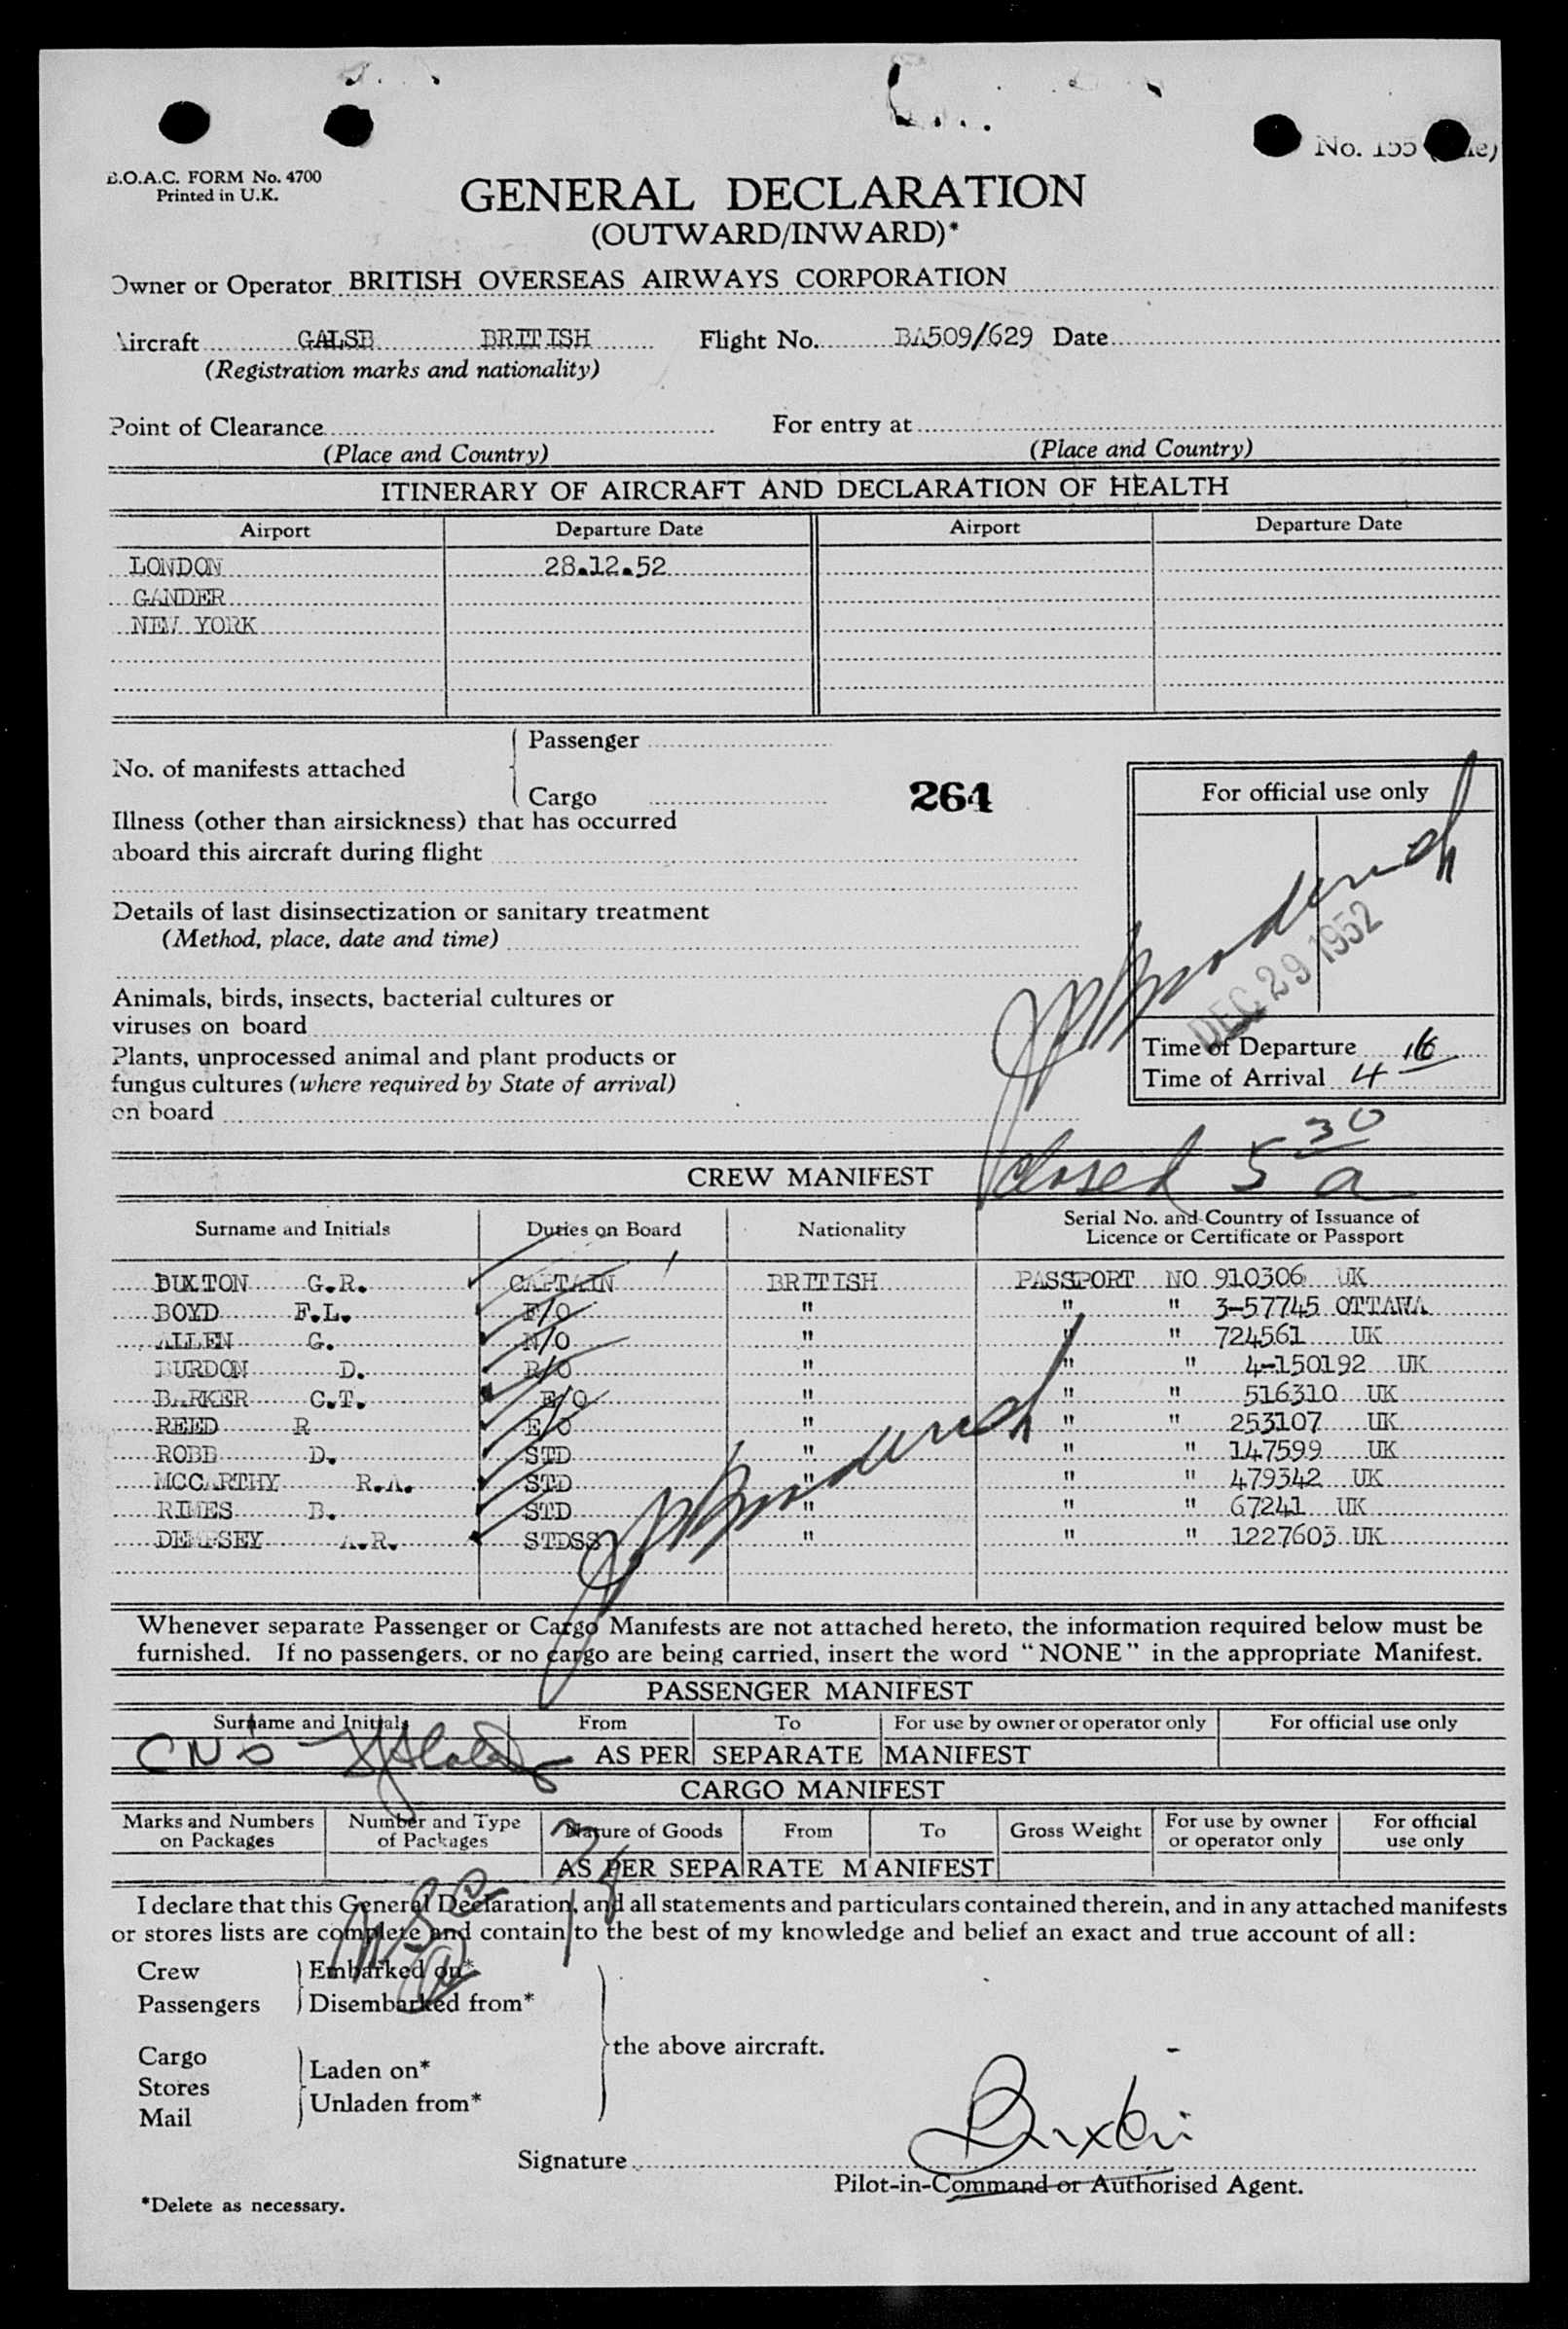 B.O.A.C. FORM No. 4700
Printed in U.K.
No. 155
GENERAL DECLARATION
(OUTWARD/INWARD)*
Owner or Operator BRITISH OVERSEAS AIRWAYS CORPORATION
Aircraft GALSB BRITISH Flight No. BA509/629 Date
(Registration marks and nationality)
Point of Clearance For entry at
(Place and Country) (Place and Country)
ITINERARY OF AIRCRAFT AND DECLARATION OF HEALTH
Airport Departure Date Airport Departure Date
LONDON 28.12.52
GANDER
NEW YORK
Passenger
No. of manifests attached
Cargo 264 For official use only
Illness (other than airsickness) that has occurred
aboard this aircraft during flight
Details of last disinsectization or sanitary treatment
(Method, place, date and time)
DEC 29 1952
Animals, birds, insects, bacterial cultures or
viruses on board
Plants, unprocessed animal and plant products or
fungus cultures (where required by State of arrival)
on board
Time of Departure 16
Time of Arrival 4
closed 5 30 a
CREW MANIFEST
Surname and Initials Duties on Board Nationality Serial No. and Country of Issuance of
Licence or Certificate or Passport
BUXTON G.R. CAPTAIN BRITISH PASSPORT NO 910306 UK
BOYD F.L. F/O " " " 3-57745 OTTAWA
ALLEN G. N/O " " " 724561 UK
BURDON D. R/O " " " 4-150192 UK
BARKER C.T. E/O " " " 516310 UK
REED R E/O " " " 253107 UK
ROBB D. STD " " " 147599 UK
MCCARTHY R.A. STD " " " 479342 UK
RIMES B. STD " " " 67241 UK
DEMPSEY A.R. STDSS " " " 1227603 UK
Whenever separate Passenger or Cargo Manifests are not attached hereto, the information required below must be
furnished. If no passengers, or no cargo are being carried, insert the word "NONE" in the appropriate Manifest.
PASSENGER MANIFEST
Surname and Initials From To For use by owner or operator only For official use only
AS PER SEPARATE MANIFEST
CARGO MANIFEST
Marks and Numbers on Packages Number and Type of Packages Nature of Goods From To Gross Weight For use by owner or operator only For official use only
AS PER SEPARATE MANIFEST
I declare that this General Declaration, and all statements and particulars contained therein, and in any attached manifests
or stores lists are complete and contain to the best of my knowledge and belief an exact and true account of all:
Crew Embarked on*
Passengers Disembarked from*
the above aircraft.
Cargo
Stores Laden on*
Mail Unladen from*
Buxton
Signature
Pilot-in-Command or Authorised Agent.
*Delete as necessary.